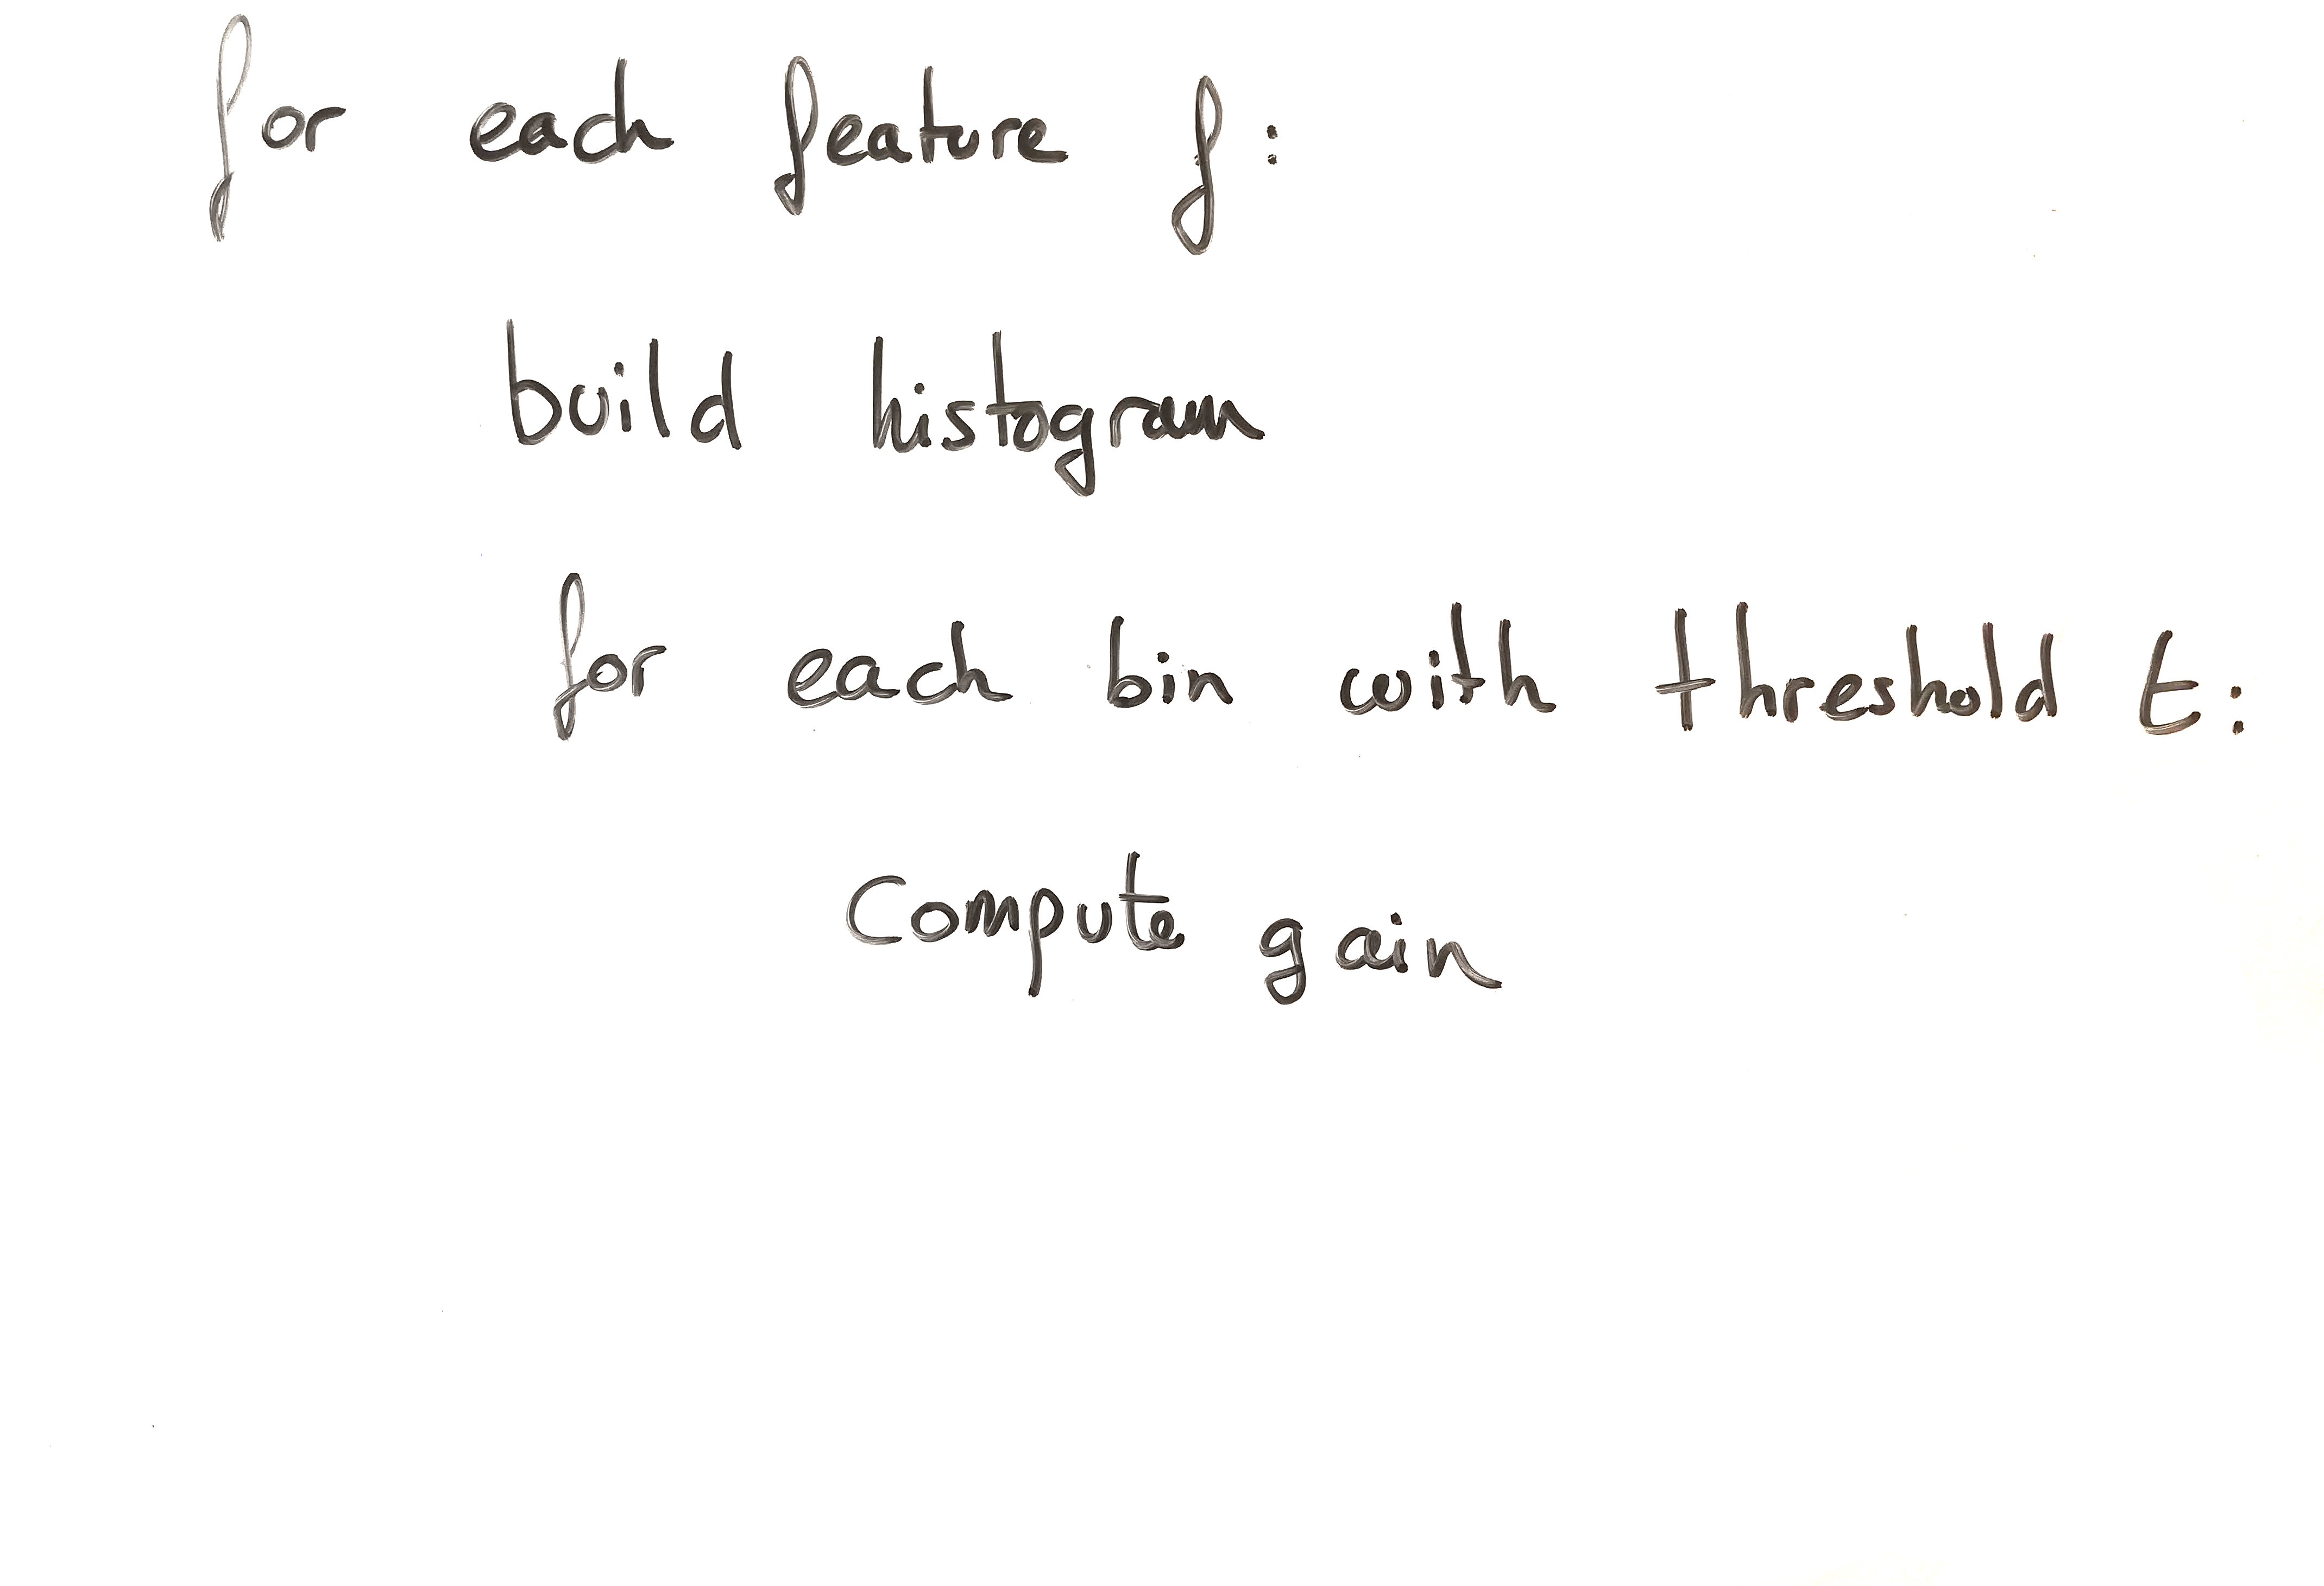 for each feature f:
build histogram
for each bin with threshold t:
Compute gain